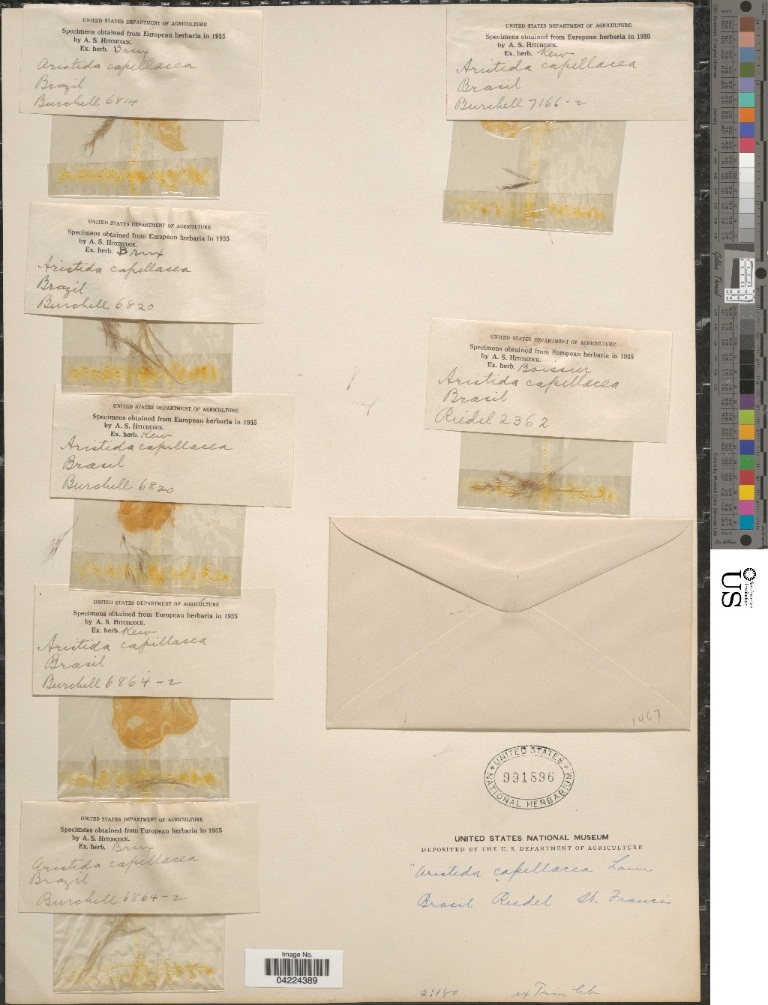 UNITED STATES DEPARTMENT OF AGRICULTURE
Specimens obtained from European herbaria in 1935
by A. S. HITCHCOCK.
Ex. herb. Brux
Aristida capillacea
Brazil
Burchell 6814
UNITED STATES DEPARTMENT OF AGRICULTURE
Specimens obtained from European herbaria in 1935
by A. S. HITCHCOCK.
Ex. herb. Brux
Aristida capillacea
Brazil
Burchell 6820
UNITED STATES DEPARTMENT OF AGRICULTURE
Specimens obtained from European herbaria in 1935
by A. S. HITCHCOCK.
Ex. herb. Kew
Aristida capillacea
Brasil
Burchell 6820
UNITED STATES DEPARTMENT OF AGRICULTURE
Specimens obtained from European herbaria in 1935
by A. S. HITCHCOCK.
Ex. herb. Kew
Aristida capillacea
Brasil
Burchell 6864-2
UNITED STATES DEPARTMENT OF AGRICULTURE
Specimens obtained from European herbaria in 1935
by A. S. HITCHCOCK.
Ex. herb. Brux
Aristida capillacea
Brazil
Burchell 6864-2
UNITED STATES DEPARTMENT OF AGRICULTURE
Specimens obtained from European herbaria in 1935
by A. S. HITCHCOCK.
Ex. herb. Kew
Aristida capillacea
Brasil
Burchell 7166-2
UNITED STATES DEPARTMENT OF AGRICULTURE
Specimens obtained from European herbaria in 1935
by A. S. HITCHCOCK.
Ex. herb. Boissier
Aristida capillacea
Brasil
Riedel 2362
1467
UNITED STATES
991896
NATIONAL HERBARIUM
UNITED STATES NATIONAL MUSEUM
DEPOSITED BY THE U. S. DEPARTMENT OF AGRICULTURE
"Aristida capillacea Lam
Brasil Riedel St. Francis
Image No.
04224389
US